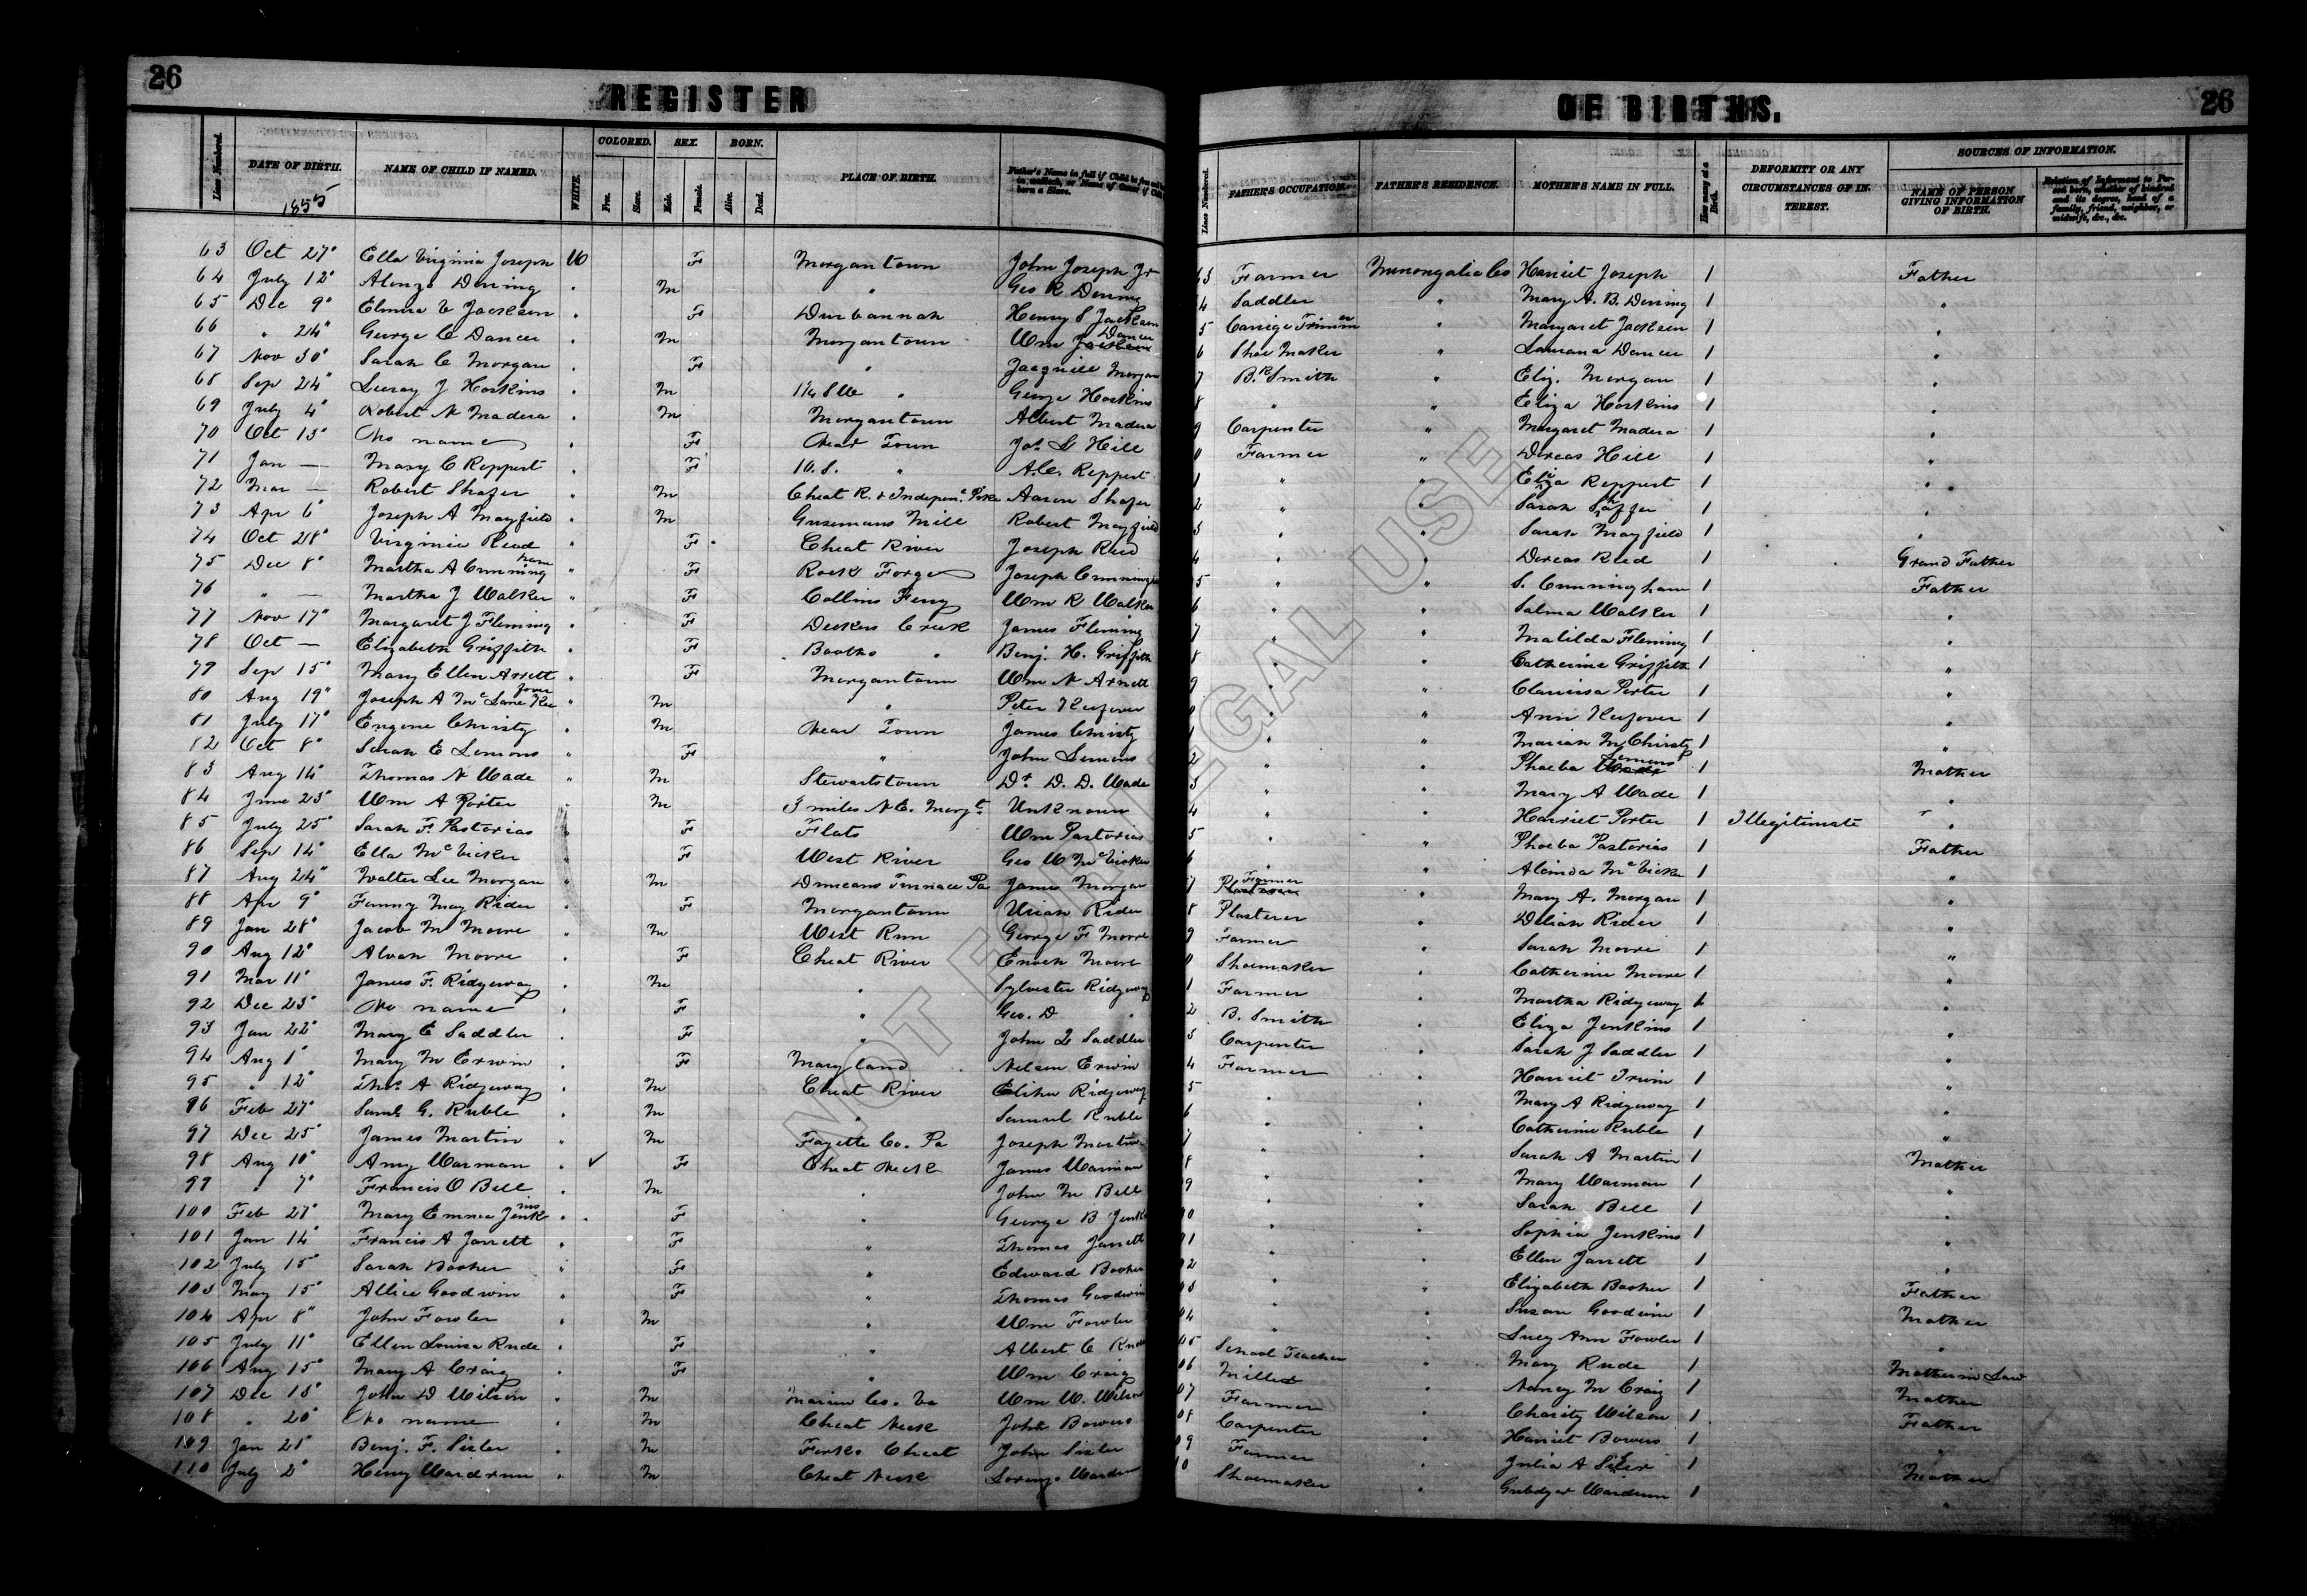 26
REGISTER
OF BIRTHS.
26
Lines Numbered. DATE OF BIRTH. NAME OF CHILD IF NAMED. WHITE. COLORED. Free. Slave. SEX. Male. Female. BORN. Alive. Dead. PLACE OF BIRTH. Father's Name in full if Child is free and born in wedlock, or Name of Owner if Child born a Slave.
Lines Numbered. FATHER'S OCCUPATION. FATHER'S RESIDENCE. MOTHER'S NAME IN FULL. How many at a Birth. DEFORMITY OR ANY CIRCUMSTANCES OF INTEREST. SOURCES OF INFORMATION. NAME OF PERSON GIVING INFORMATION OF BIRTH. Relation of Informant to Person born, whether of kindred and its degree, head of a family, friend, neighbor, or midwife, &c., &c.
1855
63 Oct 27" Ella Virginia Joseph W F Morgantown John Joseph Jr 63 Farmer Monongalia Co Harriet Joseph 1 Father
64 July 12" Alonzo Dering " M " Geo R Dering 4 Saddler " Mary A. B. Dering 1 "
65 Dec 9" Elmira V Jackson " F Durbannah Henry S Jackson 5 Carrige Trimmer " Margaret Jackson 1 "
66 " 24" George C Dancer " M Morgantown Wm Dancer 6 Shoe Maker " Dancer 1 "
67 Nov 30" Sarah C Morgan " F " Morgan 7 B.k Smith " Eliz. Morgan 1 "
68 Sep 24" Leeroy J Hoskins " M " George Hoskins 8 " " Eliza Hoskins 1 "
69 July 4" Robert N Madera " M Morgantown Albert Madera 9 Carpenter " Margaret Madera 1 "
70 Oct 13" No name " F Near Town Jos. L Hill 0 Farmer " Dorcas Hill 1 "
71 Jan — Mary C Reppert " F " A.C. Reppert 1 " " Eliza Reppert 1 "
72 Mar — Robert Shafer " M Cheat R. & Indepen.c Pike Aaron Shafer 2 " " Sarah Shaffer 1 "
73 Apr 6" Joseph A Mayfield " M Gusemans Mill Robert Mayfield 3 " " Sarah Mayfield 1 "
74 Oct 28" Virginia Reed " F Cheat River Joseph Reed 4 " " Dorcas Reed 1 Grand Father
75 Dec 8" Martha A Cunningham " F Rock Forge Joseph Cunningham 5 " " S. Cunningham 1 Father
76 " — Martha J Walker " F Collins Ferry Wm R Walker 6 " " Salina Walker 1 "
77 Nov 17" Margaret J Fleming " F Deckers Creek James Fleming 7 " " Matilda Fleming 1 "
78 Oct — Elizabeth Griffith " F Booths " Benj. H. Griffith 8 " " Catherine Griffith 1 "
79 Sep 15" Mary Ellen Arnett " F Morgantown Wm N Arnett 9 " " Clarissa Porter 1 "
80 Aug 19" Joseph A McLane Keefover " M " Peter Keefover 0 " " Ann Keefover 1 "
81 July 17" Eugene Christy " M Near Town James Christy 1 " " Mariah M Christy 1 "
82 Oct 8" Sarah E Lemons " F " John Lemons 2 " " Phoeba Lemons 1 Mother
83 Aug 14" Thomas N Wade " M Stewartstown Dr. D. D. Wade 3 " " Mary A Wade 1 "
84 June 23" Wm A Porter " M 3 miles N.E. Morgt. Unknown 4 " " Harriet Porter 1 Illegitimate "
85 July 25" Sarah F. Pastorias " F Flats Wm Pastorias 5 " " Phoeba Pastorias 1 Father
86 Sep 14" Ella McVicker " F West River Geo W McVicker 6 " " Alcinda McVicker 1 "
87 Aug 24" Walter Lee Morgan " M Duncans Pa James Morgan 7 Farmer " Mary A. Morgan 1 "
88 Apr 9" Fanny May Rider " F Morgantown Uriah Rider 8 Plasterer " Delilah Rider 1 "
89 Jan 28" Jacob M Moore " M West Run George F Moore 9 Farmer " Sarah Moore 1 "
90 Aug 12" Alvah Moore " F Cheat River Enoch Moore 0 Shoemaker " Catherine Moore 1 "
91 Mar 11" James F. Ridgeway " M " Sylvester Ridgeway 1 Farmer " Martha Ridgeway 1 "
92 Dec 23" No name " F " Geo. D " 2 B. Smith " Eliza Jenkins 1 "
93 Jan 22" Mary E Saddler " F " John Q Saddler 3 Carpenter " Sarah J Saddler 1 "
94 Aug 1" Mary M Erwin " F Maryland Nelson Erwin 4 Farmer " Harriet Irwin 1 "
95 " 12" Thos. A Ridgeway " M Cheat River Elihu Ridgeway 5 " " Mary A Ridgeway 1 "
96 Feb 27" Saml G. Ruble " M " Samuel Ruble 6 " " Catherine Ruble 1 "
97 Dec 25" James Martin " M Fayette Co. Pa Joseph Martin 7 " " Sarah A Martin 1 Mother
98 Aug 10" Amy Warman " ✓ F Cheat Neck James Warman 8 " " Mary Warman 1 "
99 " 7" Francis O Bell " M " John M Bell 9 " " Sarah Bell 1 "
100 Feb 27" Mary Emma Jenkins " F " George B Jenk 00 " " Sophia Jenkins 1 "
101 Jan 14" Francis A Jarrett " F " Thomas Jarrett 01 " " Ellen Jarrett 1 "
102 July 15" Sarah Booher " F " Edward Booher 02 " " Elizabeth Booher 1 Father
103 May 15" Allice Goodwin " F " Thomas Goodwin 03 " " Susan Goodwin 1 Mother
104 Apr 8" John Fowler " M " Wm Fowler 04 " " Lucy Ann Fowler 1 "
105 July 11" Ellen Louisa Rude " F " Albert C Rude 05 School Teacher " Mary Rude 1 Mother in Law
106 Aug 15" Mary A Craig " F " Wm Craig 06 Miller " Nancy M Craig 1 Mother
107 Dec 13" John D Wilson " M Marion Co. Va Wm W. Wilson 07 Farmer " Charity Wilson 1 Father
108 " 20" No name " M Cheat Neck John Bowers 08 Carpenter " Harriet Bowers 1 "
109 Jan 21" Benj. F. Sisler " M Forks Cheat John Sisler 09 Farmer " Julia A Sisler 1 Mother
110 July 2" Henry Wardrum " M Cheat Neck Lorenzo Wardrum 10 Shoemaker " Wardrum 1 "
NOT FOR LEGAL USE